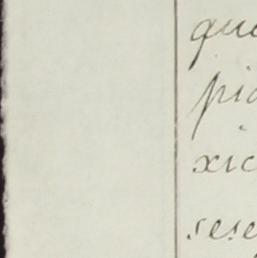 que
pid
xic
sese